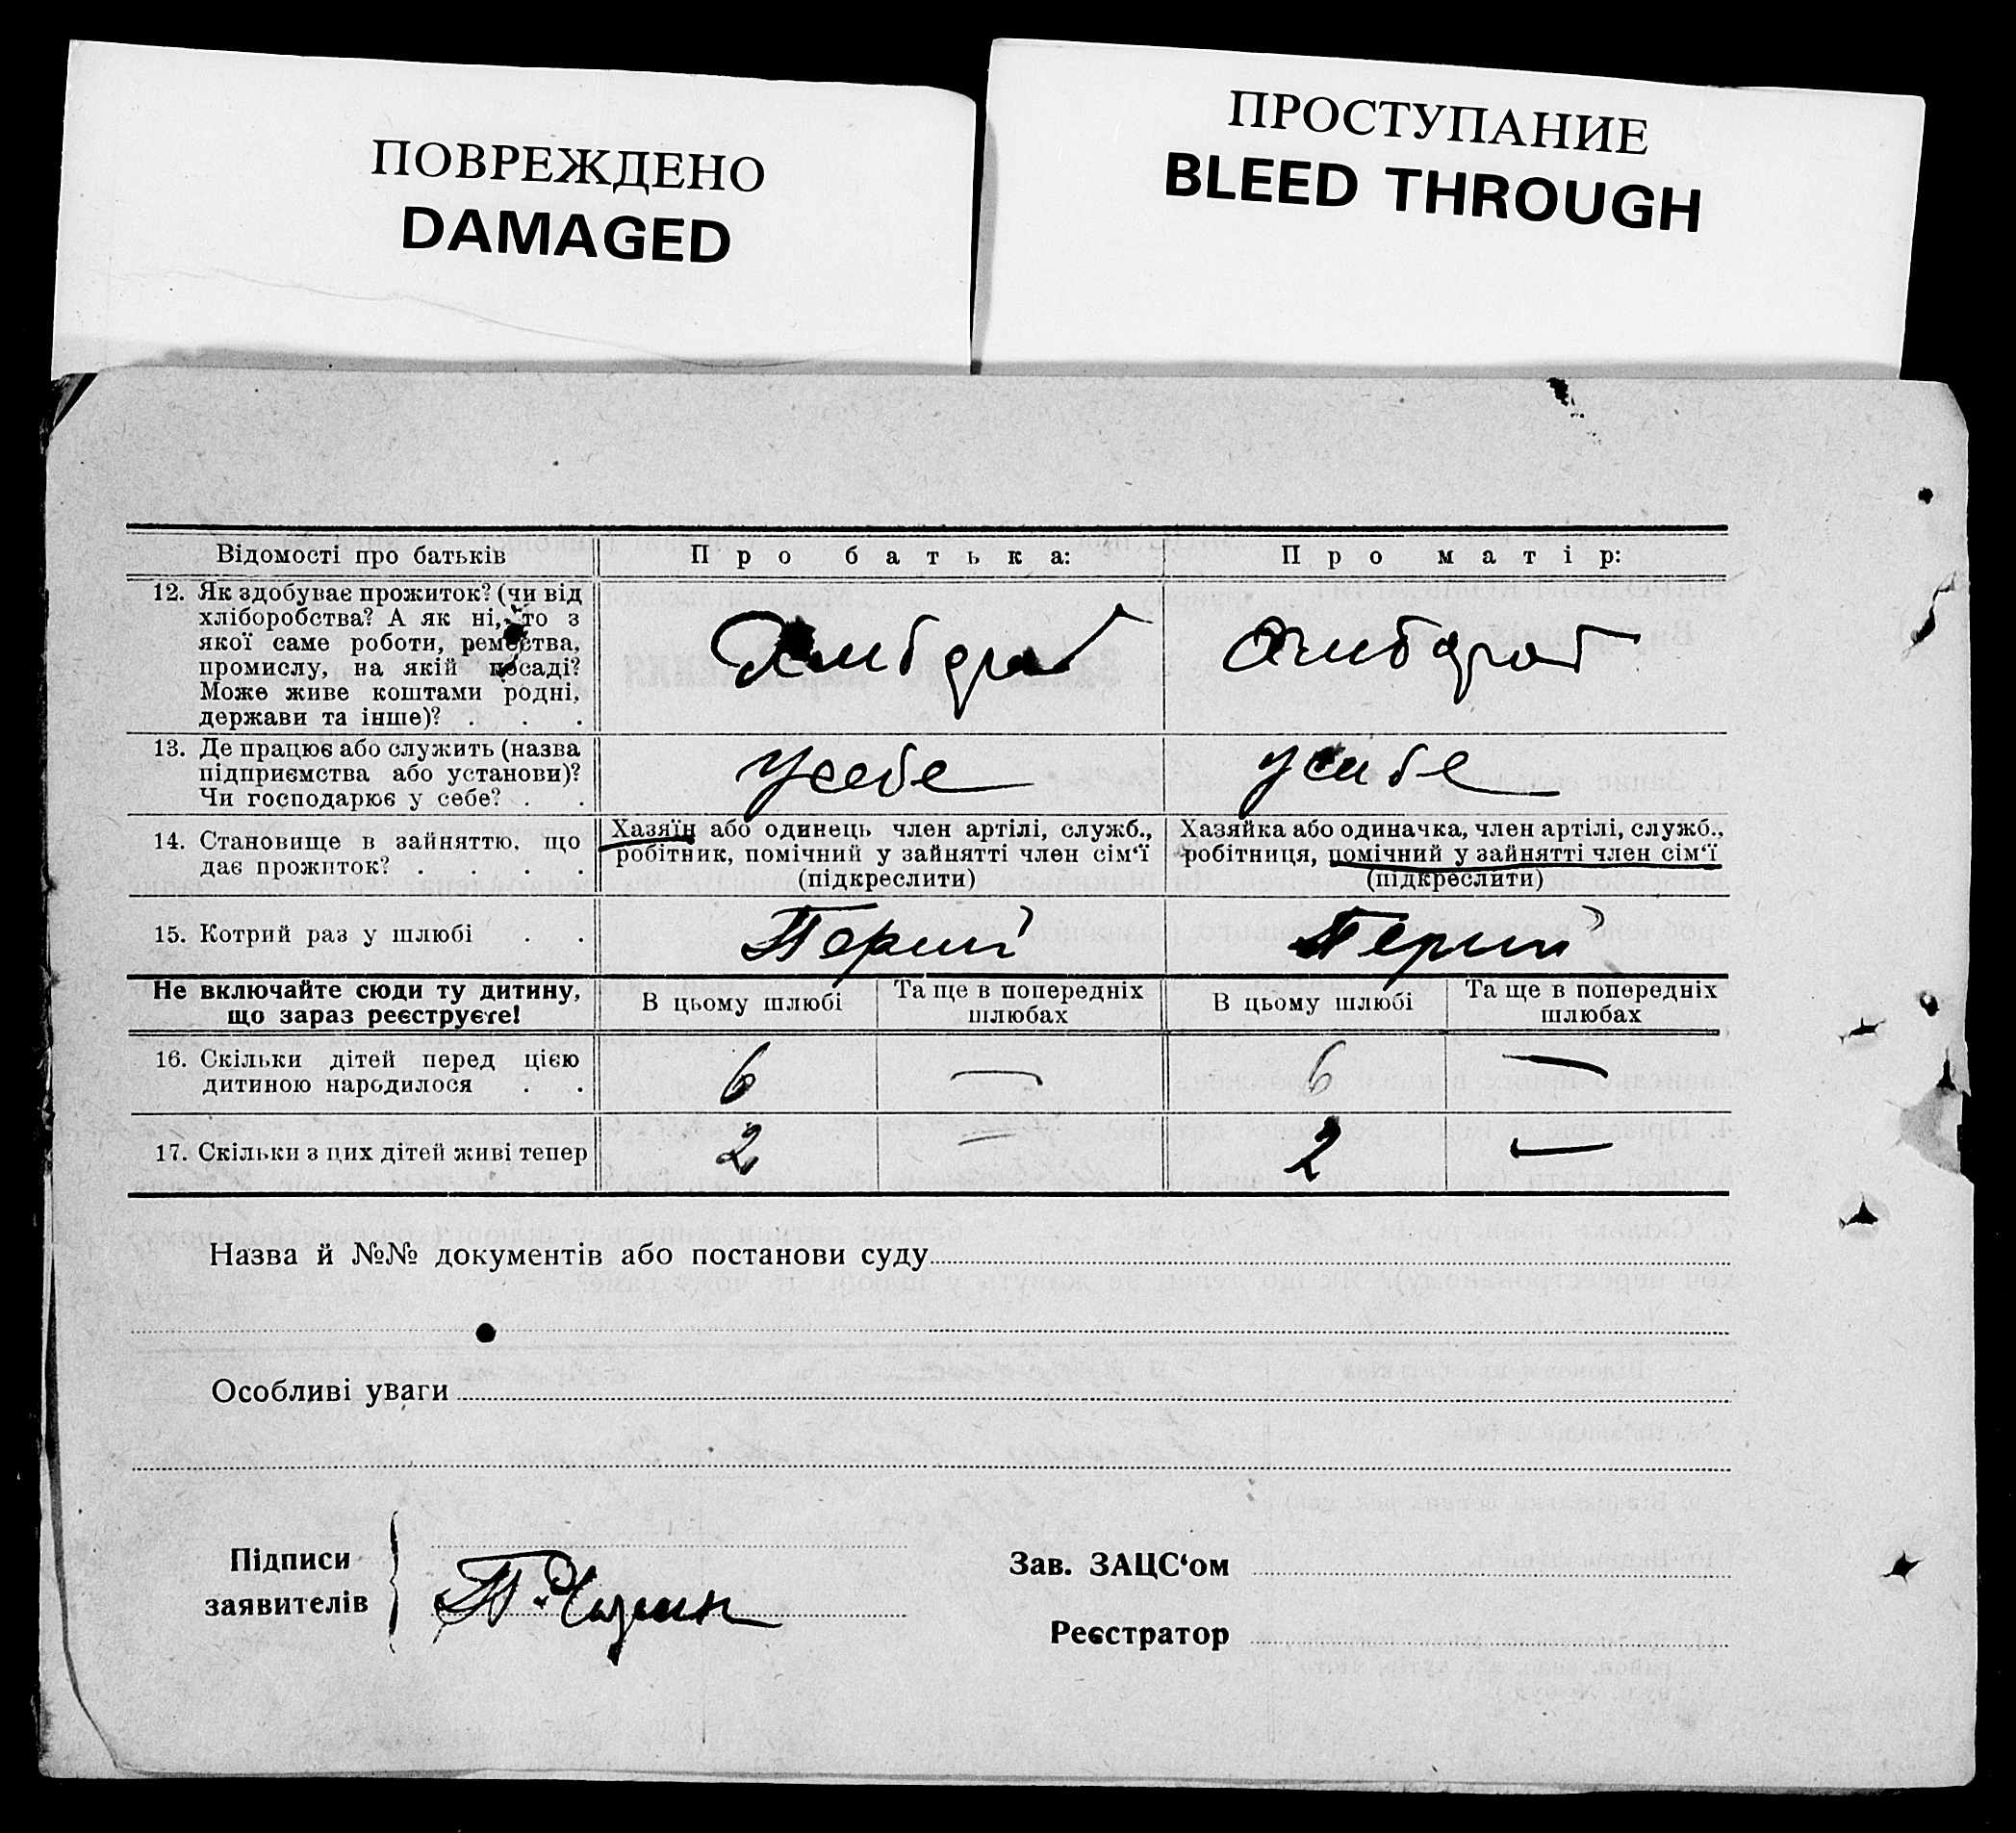 ПОВРЕЖДЕНО
DAMAGED
ПРОСТУПАНИЕ
BLEED THROUGH
Відомості про батьків
Про батька:
Про матір:
12. Як здобуває прожиток? (чи від
хліборобства? А як ні, то з
якої саме роботи, ремества,
промислу, на якій посаді?
Може живе коштами родні,
держави та інше)? . . .
Хлибороб
Хлибороб
13. Де працює або служить (назва
підприємства або установи)?
Чи господарює у себе? . .
усебе
усибе
14. Становище в зайняттю, що
дає прожиток? . . . .
Хазяїн або одинець член артілі, служб.,
робітник, помічний у зайнятті член сім‘ї
(підкреслити)
Хазяйка або одиначка, член артілі, служб.,
робітниця, помічний у зайнятті член сім‘ї
(підкреслити)
15. Котрий раз у шлюбі . .
Перший
Перший
Не включайте сюди ту дитину,
що зараз реєструєте!
В цьому шлюбі
Та ще в попередніх
шлюбах
В цьому шлюбі
Та ще в попередніх
шлюбах
16. Скільки дітей перед цією
дитиною народилося . .
6 — 6 —
17. Скільки з цих дітей живі тепер
2 — 2 —
Назва й №№ документів або постанови суду
Особливі уваги
Підписи
заявителів
Зав. ЗАЦС‘ом
Реєстратор